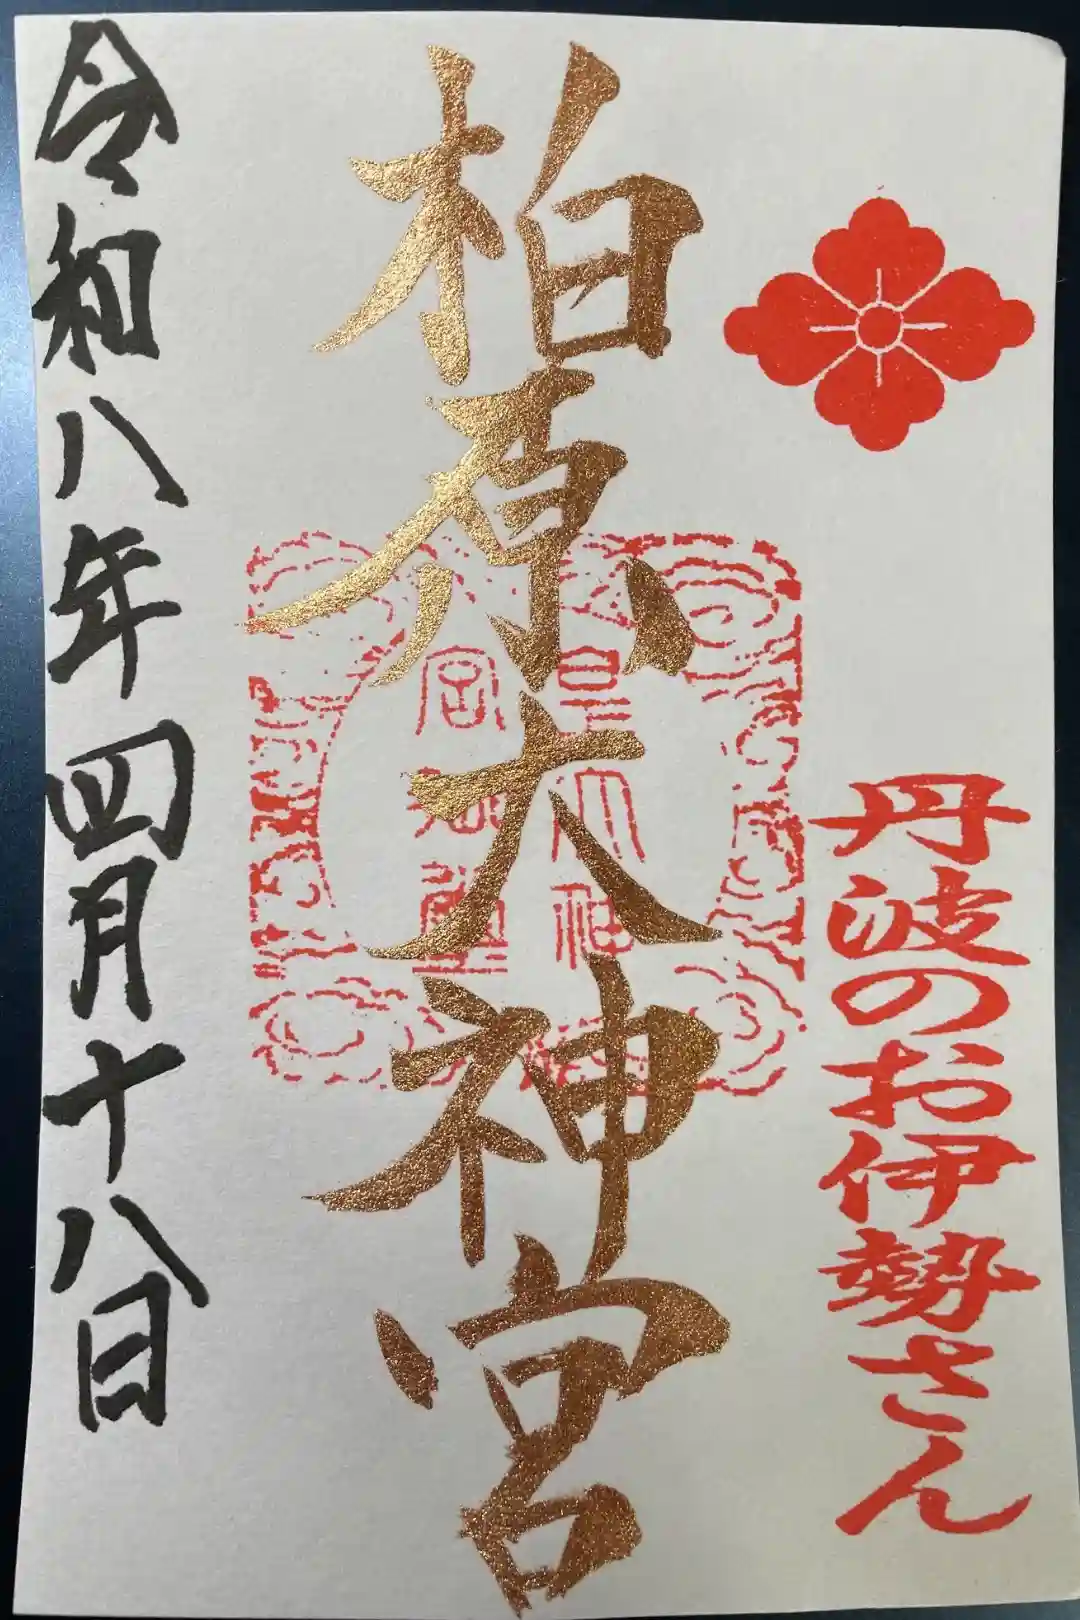 丹波のお伊勢さん
柏原大神宮
皇大神
宮
令和八年四月十八日